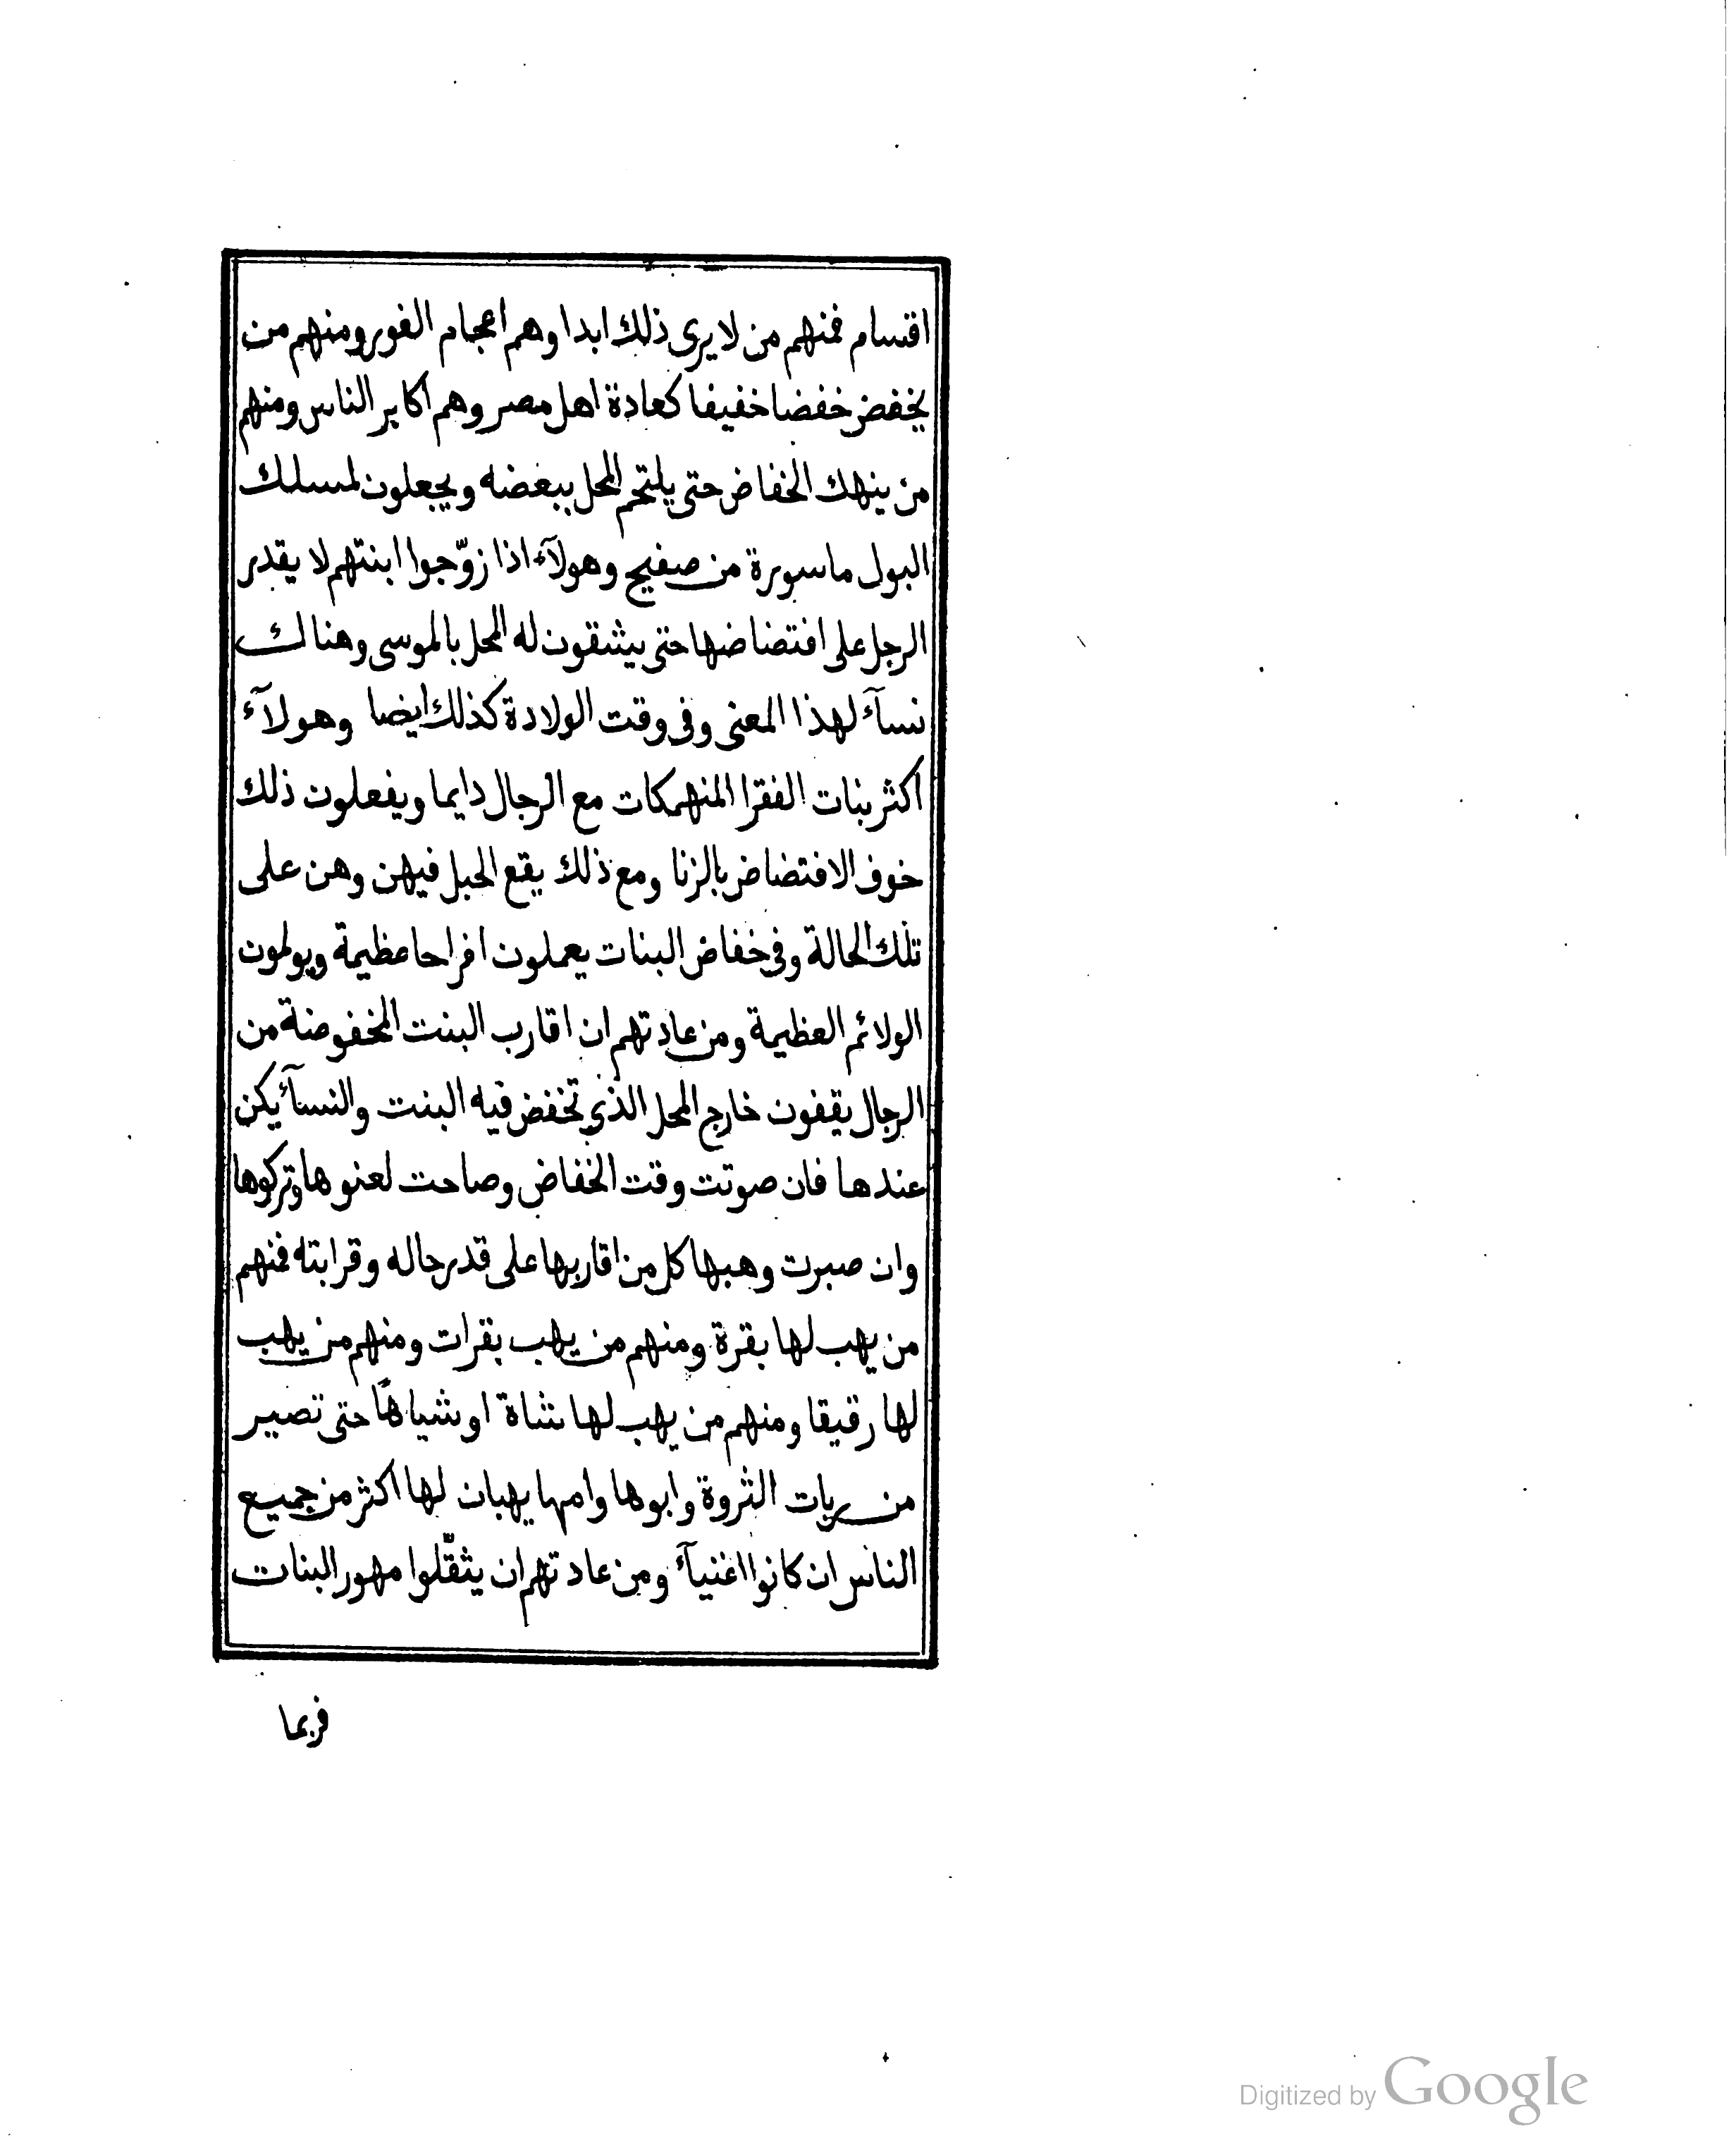 اقسام فمنهم من لا يرى ذلك ابدا وهم اعجام الفور ومنهم من
يخفض خفضا خفيفا كعادة اهل مصر وهم اكابر الناس ومنهم
من ينهك الخفاض حتى يلتحم المحل ببعضه ويجعلون لمسلك
البول ماسورة من صفيح وهولآء اذا زوّجوا ابنتهم لا يقدر
الرجل على افتضاضها حتى يشقون له المحل بالموسى وهنالك
نسآء لهذا المعنى وفى وقت الولادة كذلك ايضا وهولآء
اكثر بنات الفقرا المنهمكات مع الرجال دايما ويفعلون ذلك
خوف الافتضاض بالزنا ومع ذلك يقع الحبل فيهن وهن على
تلك الحالة وفى خفاض البنات يعملون افراحا عظيمة ويولمون
الولائم العظيمة ومن عادتهم ان اقارب البنت المخفوضة من
الرجال يقفون خارج المحل الذي تخفض فيه البنت والنسآء يكن
عندها فان صوتت وقت الخفاض وصاحت لعنوها وتركوها
وان صبرت وهبها كل من اقاربها على قدر حاله وقرابته فمنهم
من يهب لها بقرة ومنهم من يهب بقرات ومنهم من يهب
لها رقيقا ومنهم من يهب لها شاة او شياهًا حتى تصير
من ربات الثروة وابوها وامها يهبان لها اكثر من جميع
الناس ان كانوا اغنيآء ومن عادتهم ان يثقّلوا مهور البنات
فربما
Digitized by Google